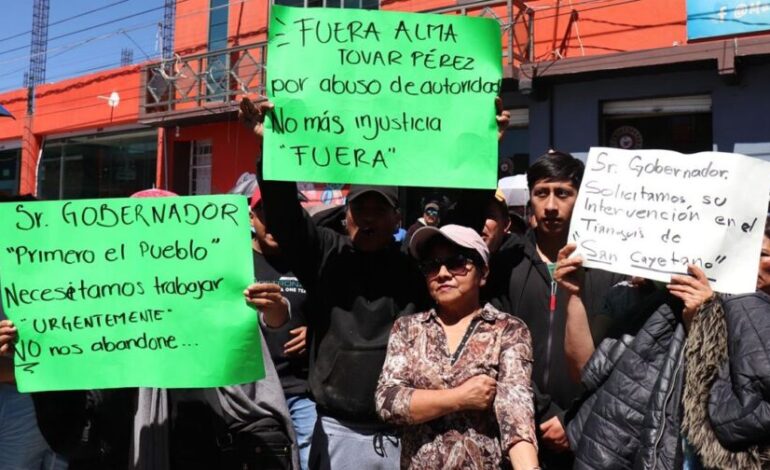 FUERA ALMA
TOVAR PÉREZ
por abuso de autoridad
No más injusticia
"FUERA"
Sr. GOBERNADOR
"Primero el Pueblo"
Necesitamos trabajar
"URGENTEMENTE"
NO nos abandone...
Sr. Gobernador.
Solicitamos, su
Intervención en el
Tianguis de
"San Cayetano"